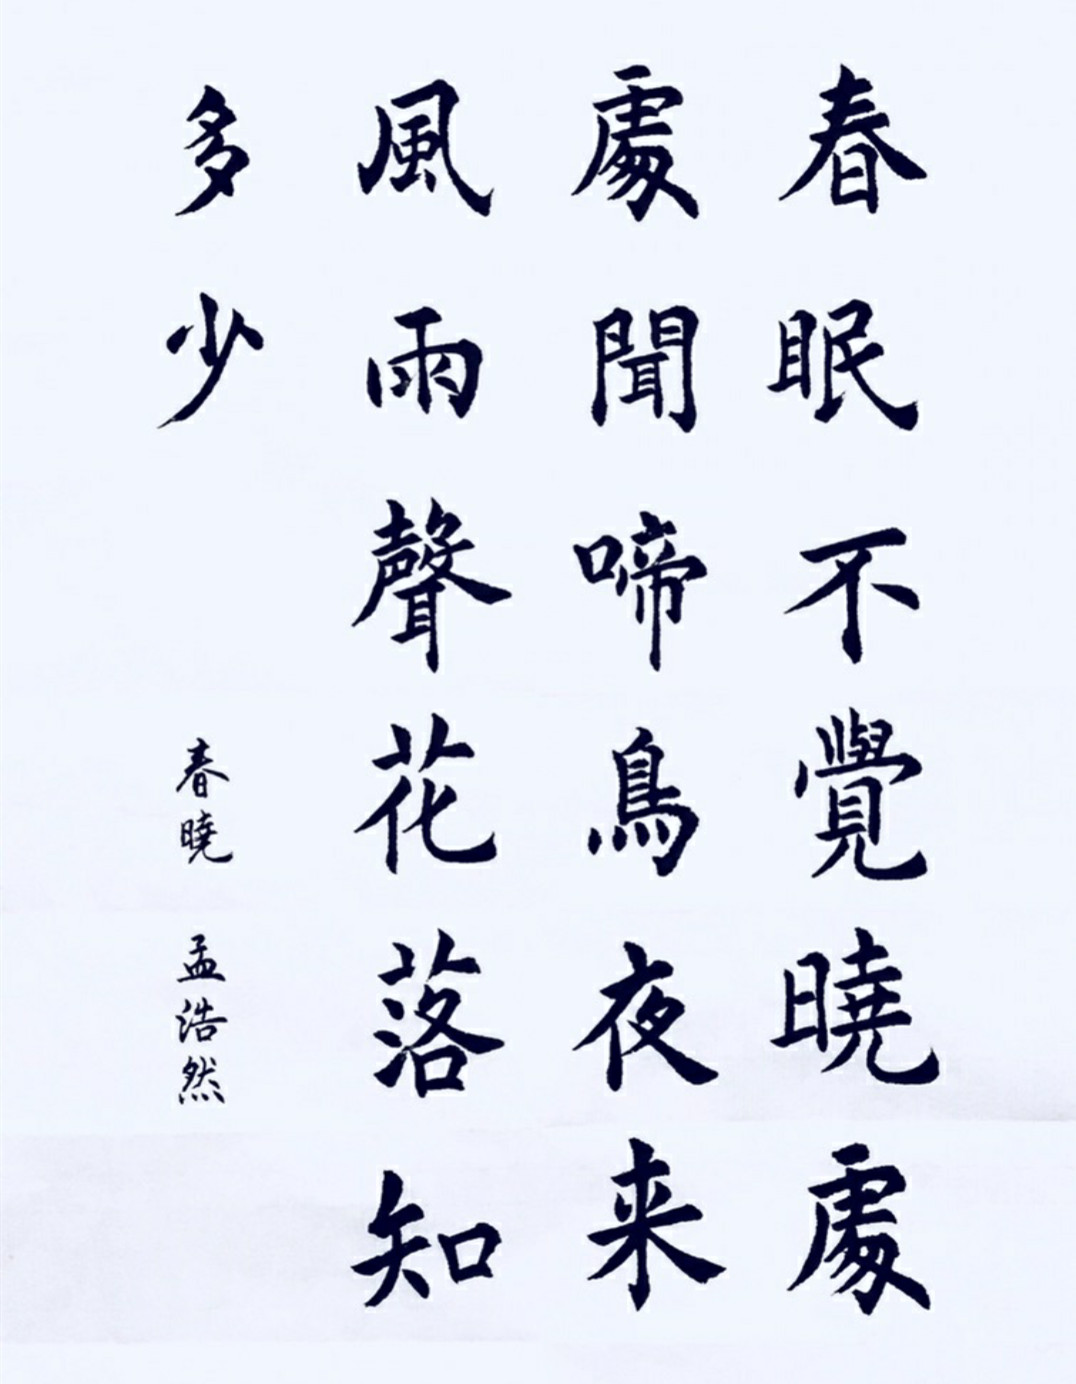 春眠不覺曉處
處聞啼鳥夜来
風雨聲花落知
多少
春曉 孟浩然